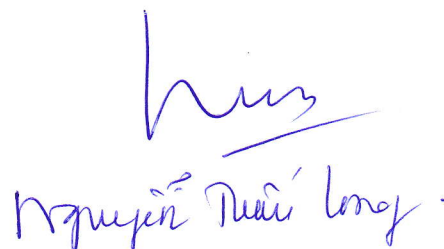 Nguyễn Tuấn Long.